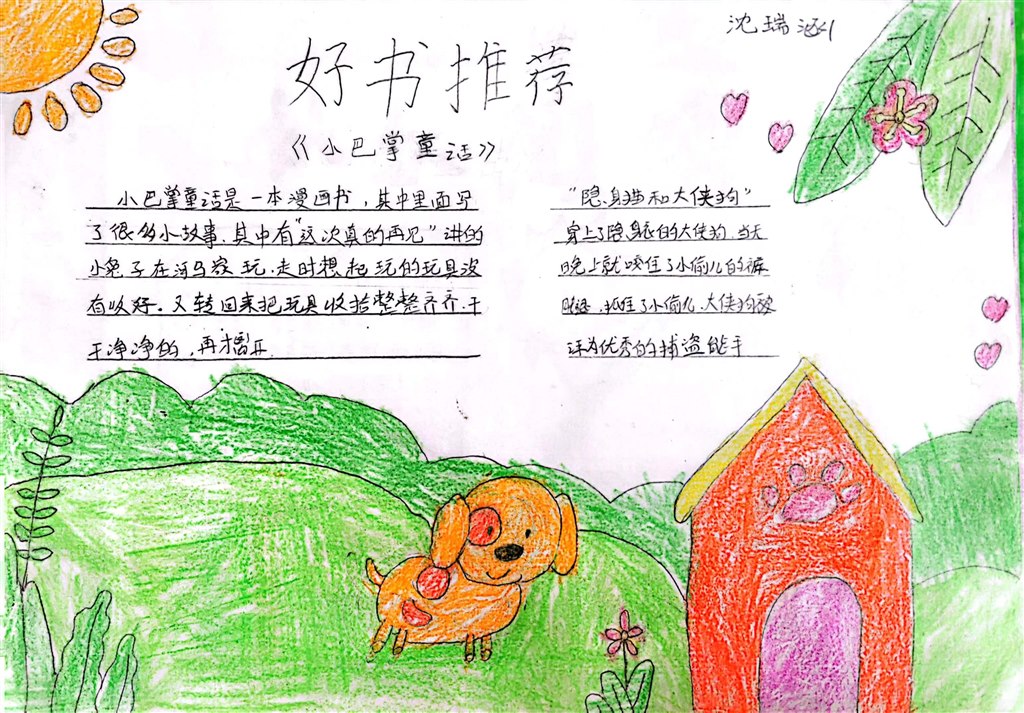 沈瑞涵
好书推荐
《小巴掌童话》
小巴掌童话是一本漫画书，其中里面写
了很多小故事.其中有"这次真的再见"讲的
小兔子在河马家玩.走时想起玩的玩具没
有收好。又转回来把玩具收拾整整齐齐.干
干净净的，再离开
"隐身猫和大侠狗"
穿上了隐身衣的大侠狗.当天
晚上就咬住了小偷儿的裤
腿.抓住了小偷儿.大侠狗被
评为优秀的捕盗能手